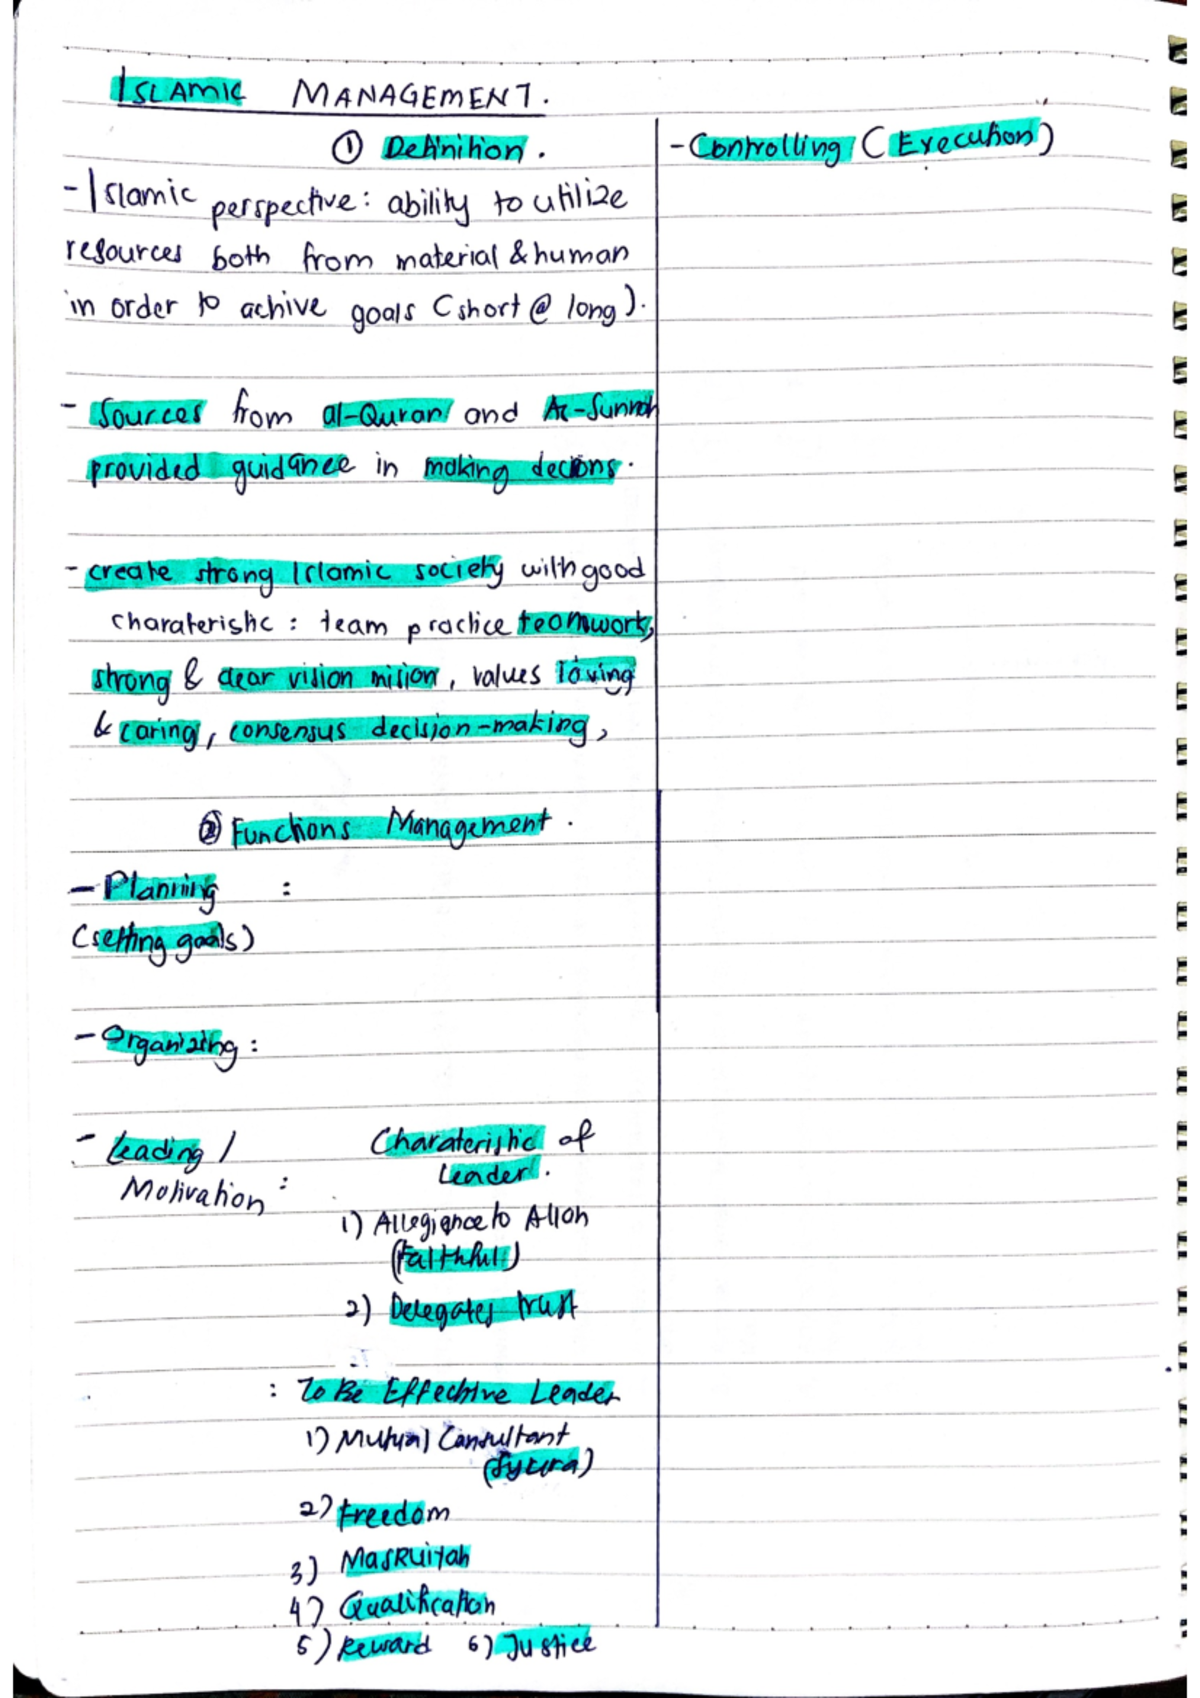 ISLAMIC MANAGEMENT.
① Definition.
- Islamic perspective: ability to utilize
resources both from material & human
in order to achive goals (short @ long).
- Sources from al-Quran and As-Sunnah
provided guidance in making decions.
- create strong Islamic society with good
charateristic : team practice teamwork,
strong & clear vision mision, values loving
& caring, consensus decision-making,
② Functions Management.
- Planning :
(setting goals)
- Organizing :
- Leading /
Motivation :
Charateristic of
Leader.
1) Allegiance to Allah
(Faithful)
2) Delegates trust
: To Be Effective Leader
1) Mutual Consultant
(Syura)
2) Freedom
3) Masruiyah
4) Qualification
5) Reward 6) Justice
- Controlling (Execution)